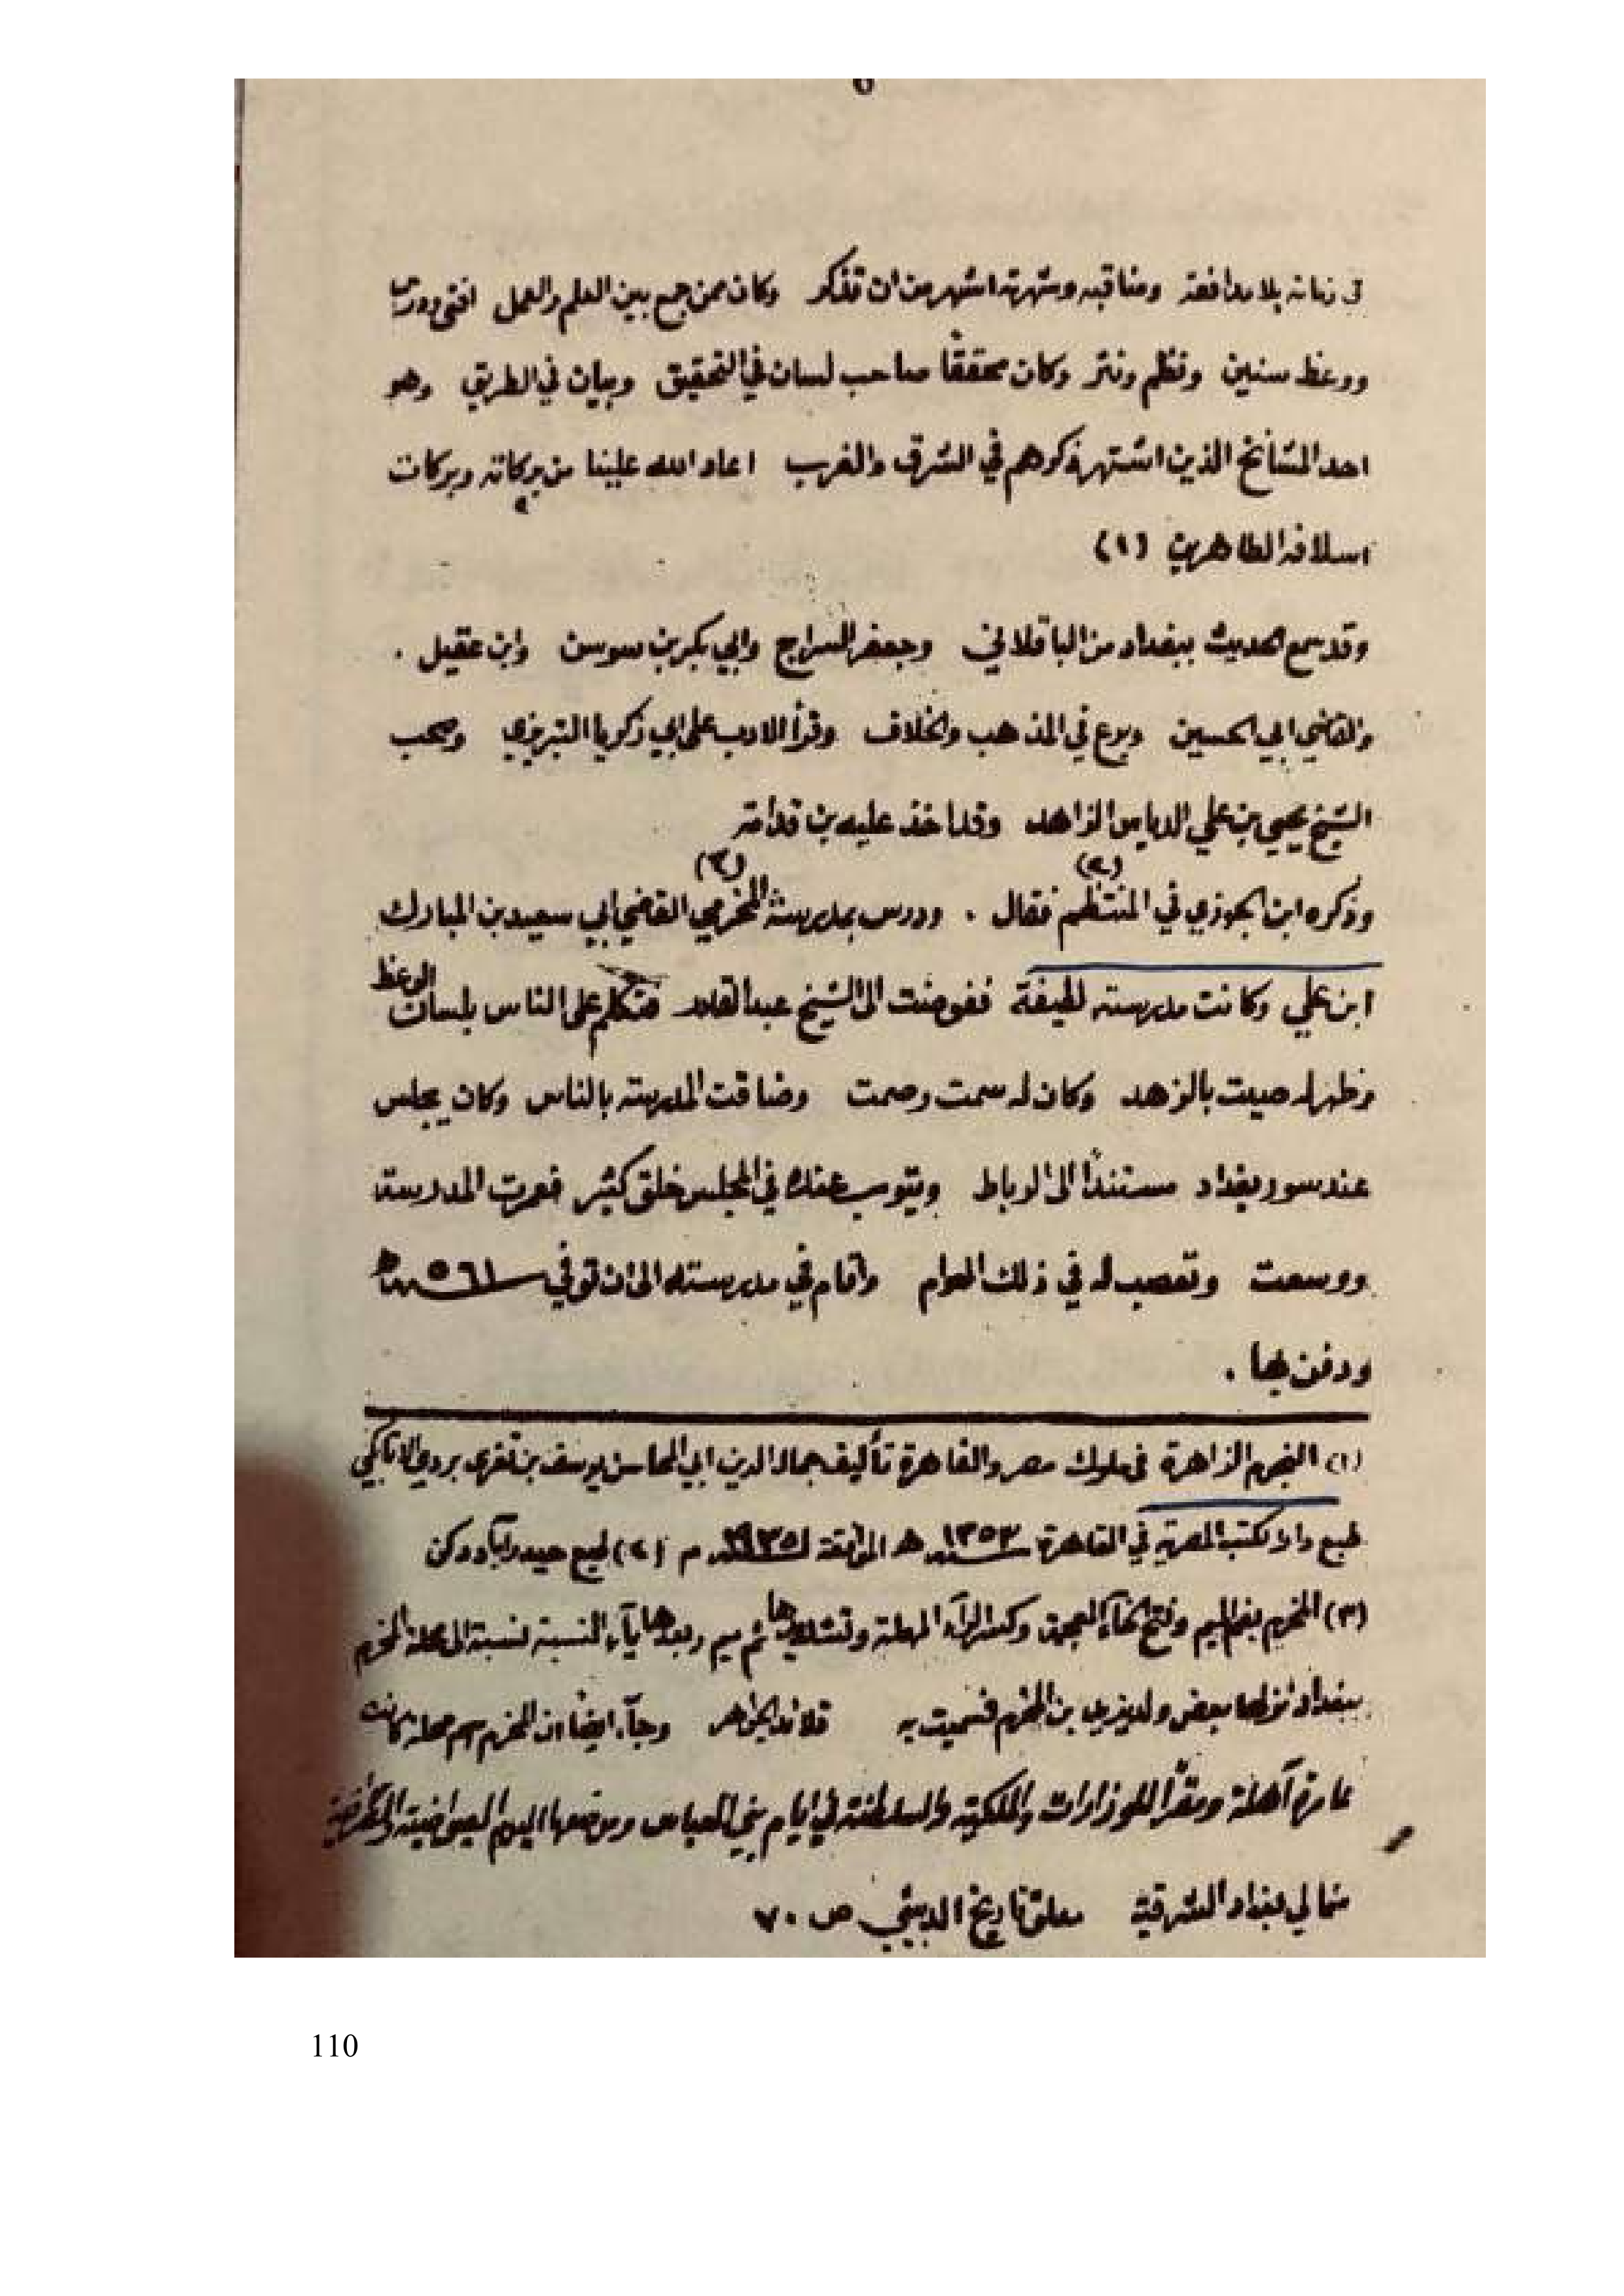 في زمانه بلا مدافعة ومناقبه وشهرته اشهر من ان تذكر وكان ممن جمع بين العلم والعمل افتى ودرس
ووعظ سنين ونظم ونثر وكان محققًا صاحب لسان في التحقيق وبيان في الطريق وهو
احد المشائخ الذين اشتهر ذكرهم في الشرق والغرب اعاد الله علينا من بركاته وبركات
اسلافه الطاهرين (١)
وقد سمع الحديث ببغداد من الباقلاني وجعفر السراج وابي بكر بن سوسن وابن عقيل .
والقاضي ابي الحسين وبرع في المذهب والخلاف وقرأ الادب على ابي زكريا التبريزي وصحب
الشيخ يحيى بن علي الدباس الزاهد وقد اخذ عليه بن قدامة
وذكره ابن الجوزي في المنتظم (٢) فقال . ودرس بمدرسة المخرمي (٣) القاضي ابي سعيد بن المبارك
ابن علي وكانت مدرسته لطيفة ففوضت الى الشيخ عبدالقادر فتكلم على الناس بلسان الوعظ
وظهر له صيت بالزهد وكان له سمت وصمت وضاقت المدرسة بالناس وكان يجلس
عند سور بغداد مستندًا الى الرباط ويتوب عنده في المجلس خلق كثير فعمرت المدرسة
ووسعت وتعصب له في ذلك العوام واقام في مدرسته الى ان توفي سنة ٥٦١ هـ
ودفن بها .
(١) النجوم الزاهرة في ملوك مصر والقاهرة تأليف جمال الدين ابي المحاسن يوسف بن تغرى بردي الاتابكي
طبع دار الكتب المصرية في القاهرة سنة ١٣٥٣ هـ الموافقة لسنة ١٩٣٥ م (٢) طبع حيدرآباد دكن
(٣) المخرم بضم الميم وفتح الخآء المعجمة وكسر الرآء المهملة وتشديدها ثم ميم وبعدها يآء النسبة نسبة الى محلة المخرم
ببغداد نزلها بعض ولد يزيد بن المخرم فسميت به قلائد الجواهر وجآء ايضًا ان المخرم اسم محلة كانت
عامرة آهلة ومقرًا للوزارات والملكية والسلطنة في ايام بني العباس وموضعها اليوم العيواضية
شمالي بغداد الشرقية معلق تاريخ الدبيثي ص ٧٠
110